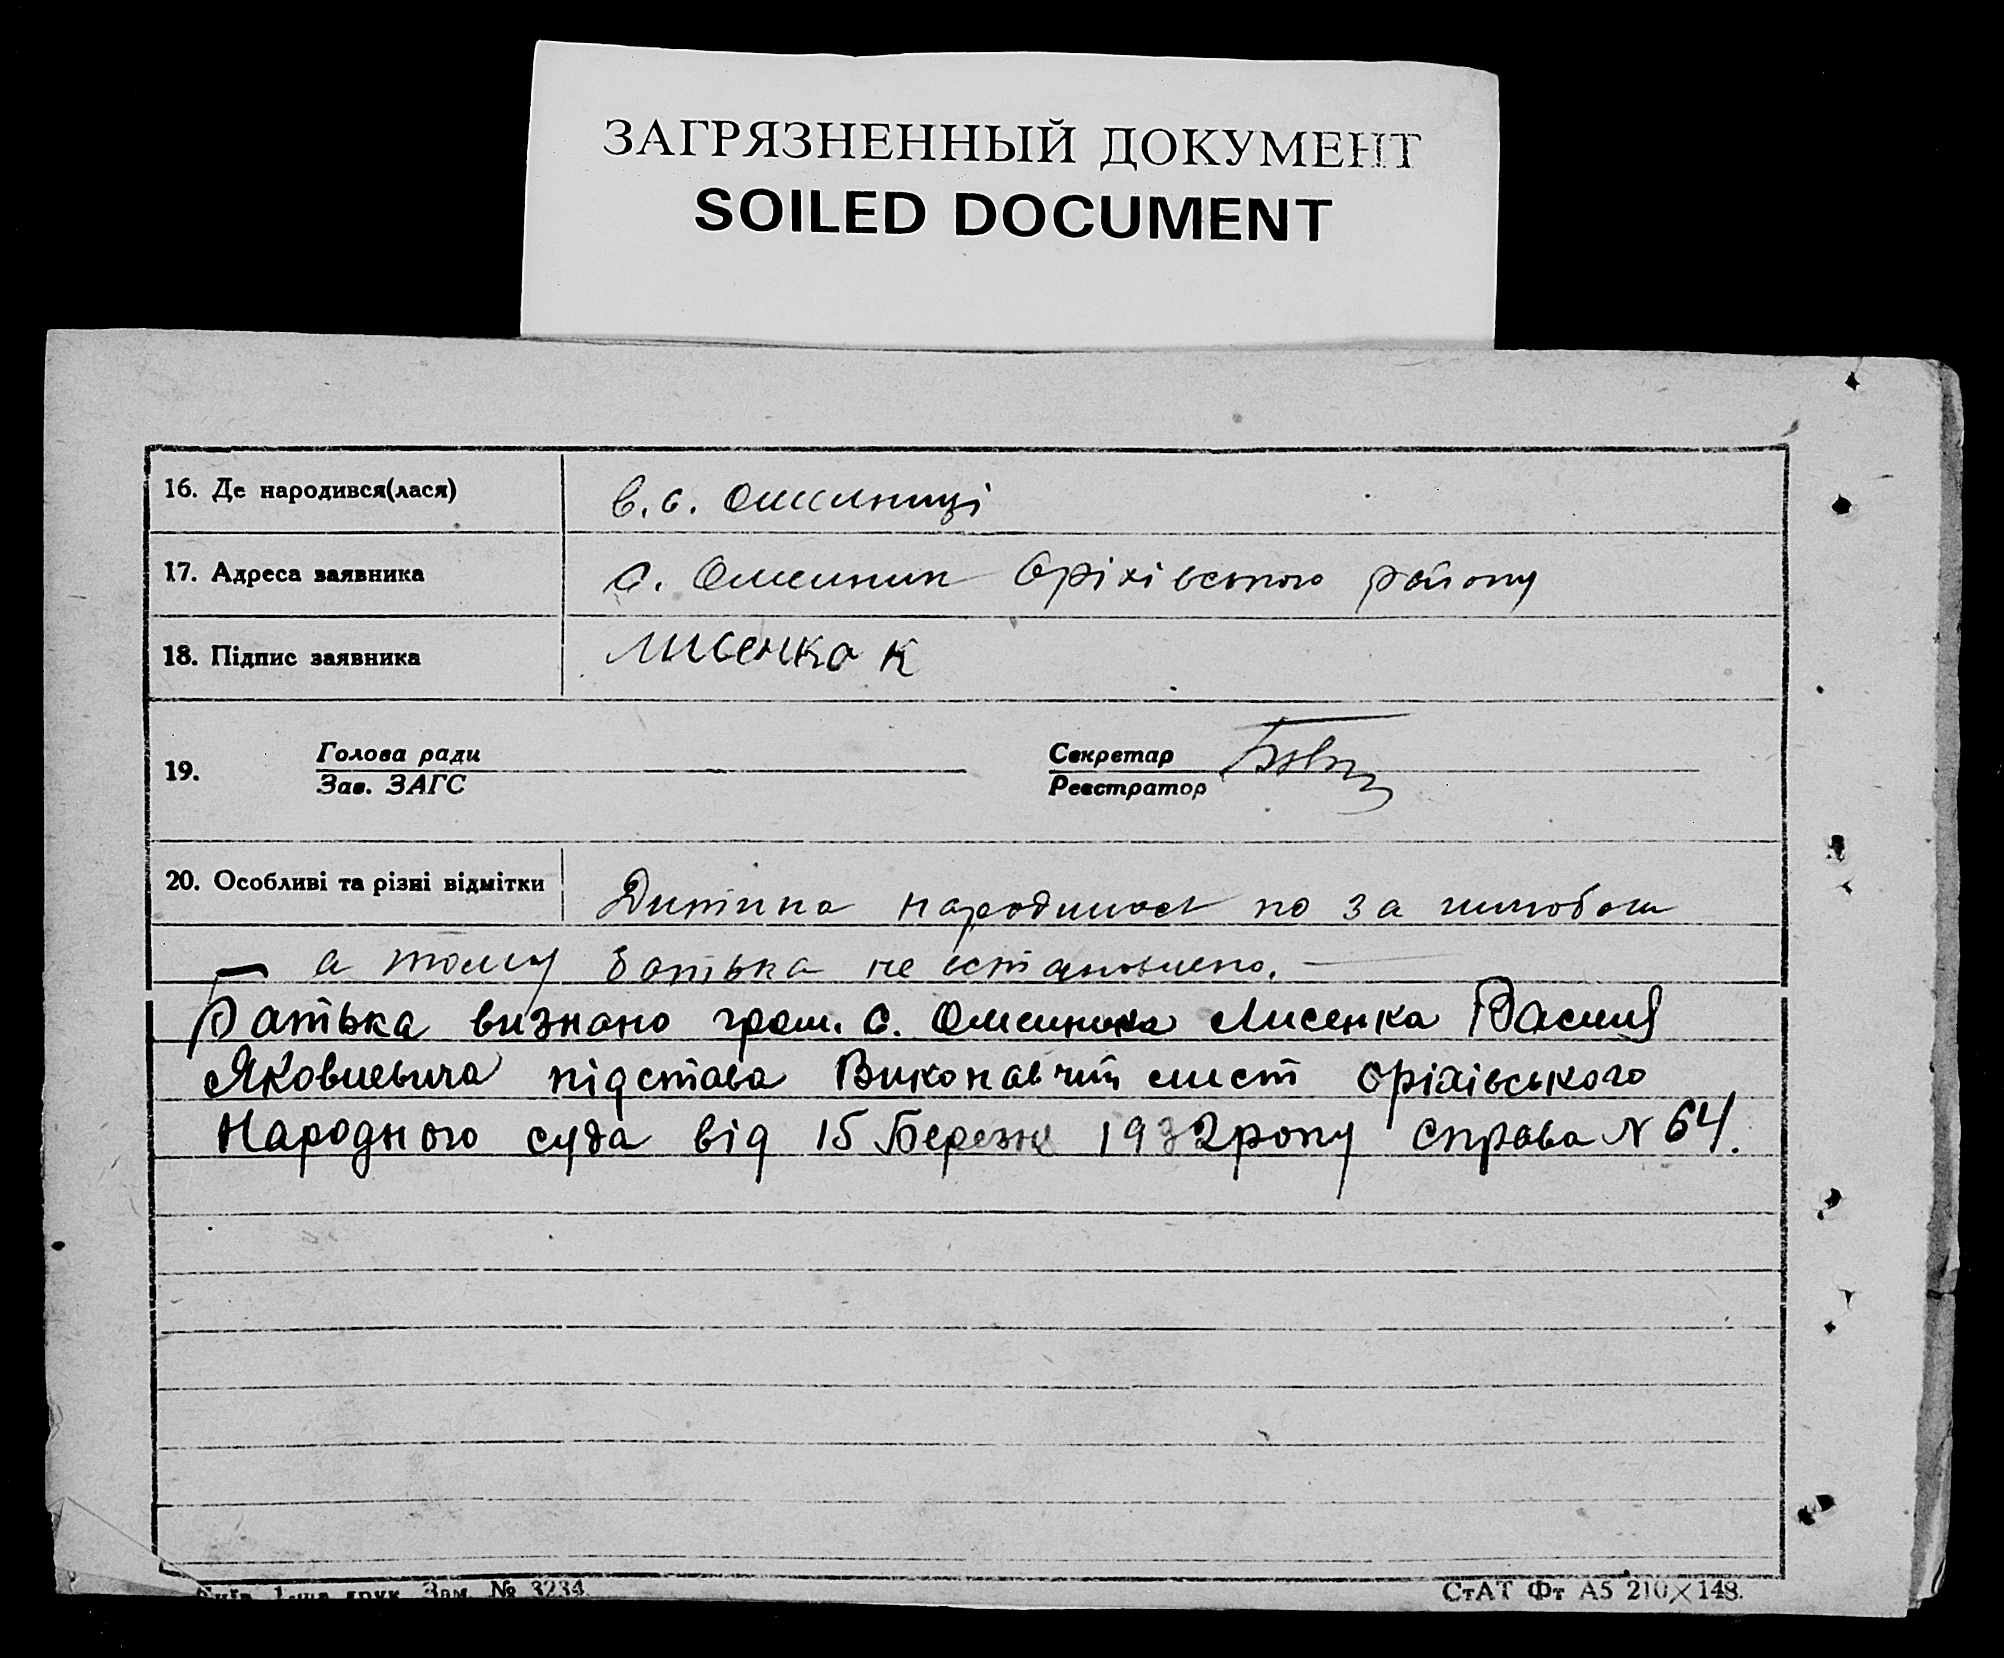 ЗАГРЯЗНЕННЫЙ ДОКУМЕНТ
SOILED DOCUMENT
16. Де народився(лася) в. с. Омельниці
17. Адреса заявника с. Омельник Оріхівського району
18. Підпис заявника Лисенко К
19. Голова ради Секретар
Зав. ЗАГС Реєстратор
20. Особливі та різні відмітки Дитина народилась по за шлюбом
а тому батька не встановлено.
Батька визнано гром. с. Омельника Лисенка Василя
Яковлевича підстава Виконавчий лист Оріхівського
Народного суда від 15 Березня 1932 року Справа N 64.
друк. Зам. № 3234.
СтАТ Фт А5 210×148.